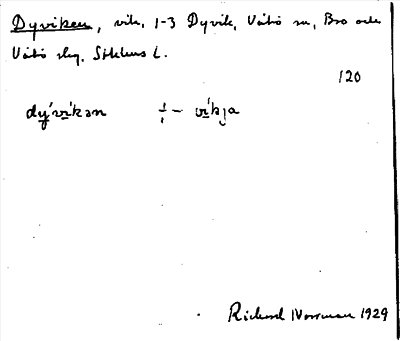 Dyviken, vik, 1-3 Dyvik, Vätö sn, Bro och
Vätö skg, Sthlms l.
120
dy´vi`kən ⸓ – vi`kja
Rickard Norrman 1929